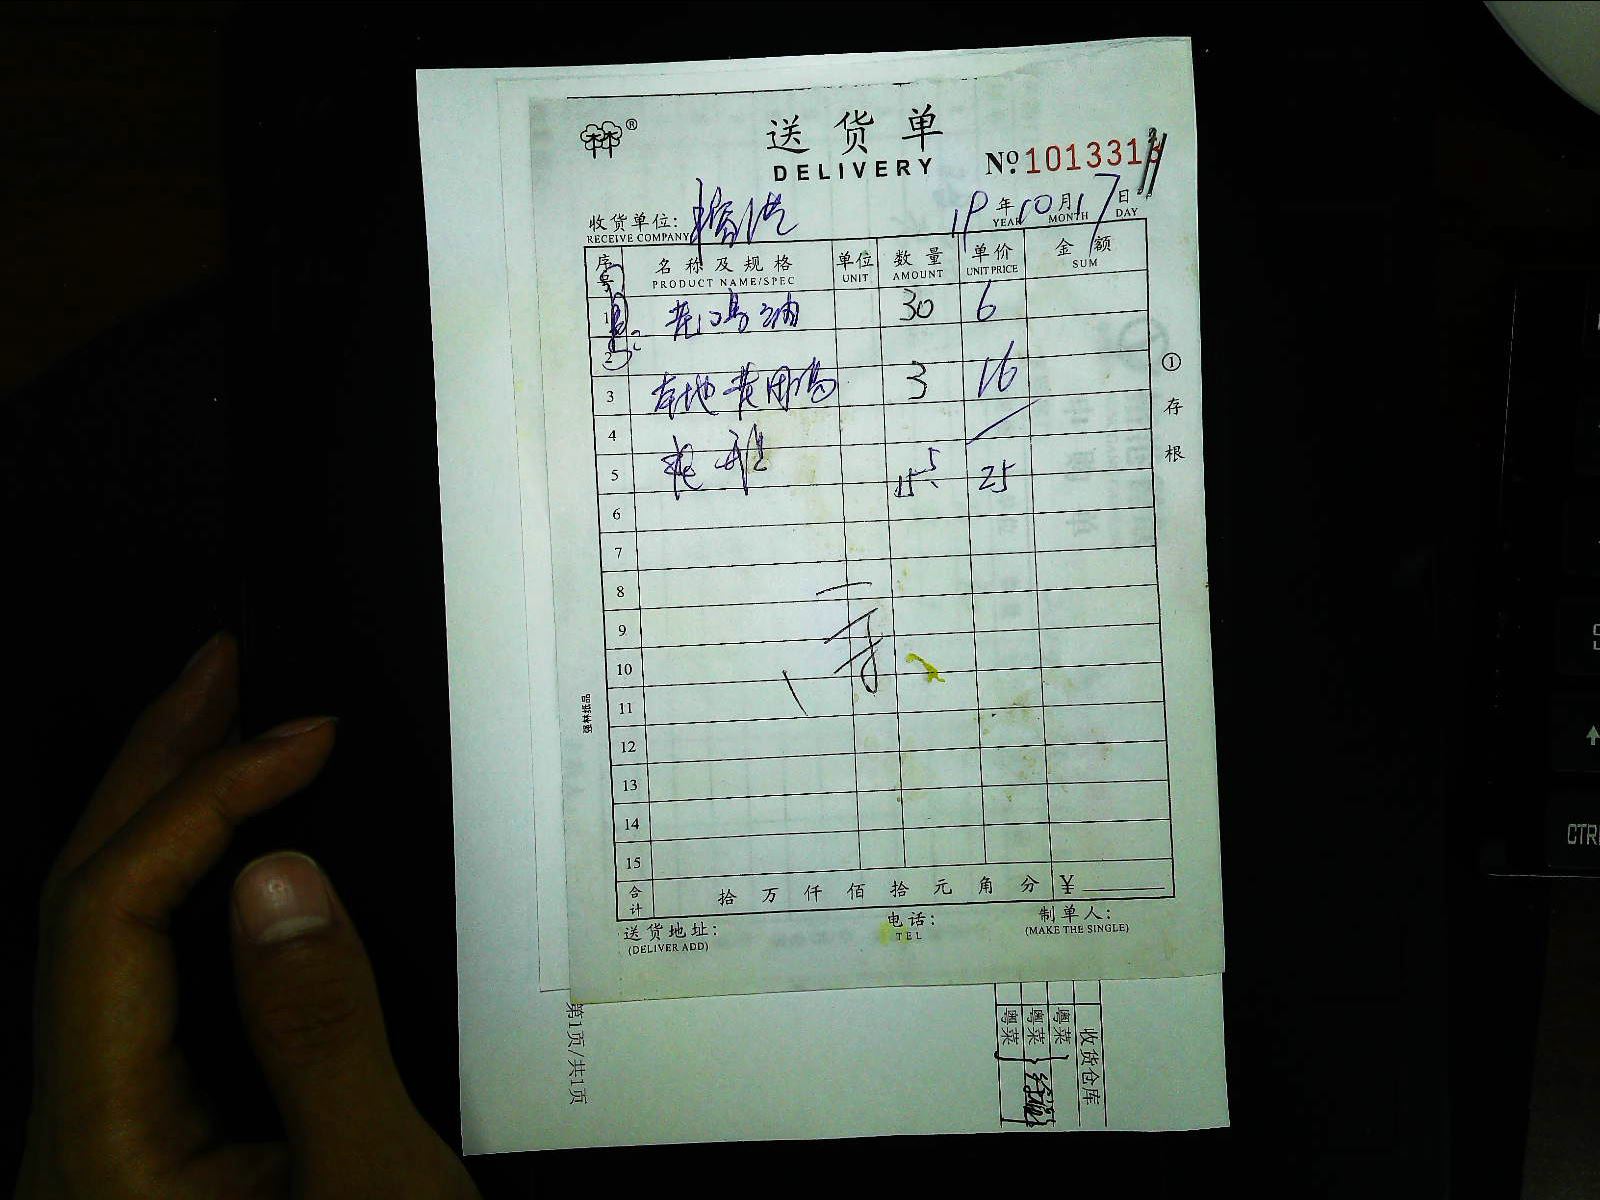 ®
送货单
DELIVERY
No. 101331
收货单位:
RECEIVE COMPANY
19年10月17日
YEAR MONTH DAY
序号 名称及规格 单位 数量 单价 金额
PRODUCT NAME/SPEC UNIT AMOUNT UNIT PRICE SUM
1 30 6
2
3 本地 3 16
4
5 25
6
7
8
9
10
11
12
13
14
15
合计 拾万仟佰拾元角分 ¥
送货地址:
(DELIVER ADD)
电话:
TEL
制单人:
(MAKE THE SINGLE)
①存根
强林纸品
第1页/共1页
收货仓库
粤菜
粤菜
粤菜
CTR